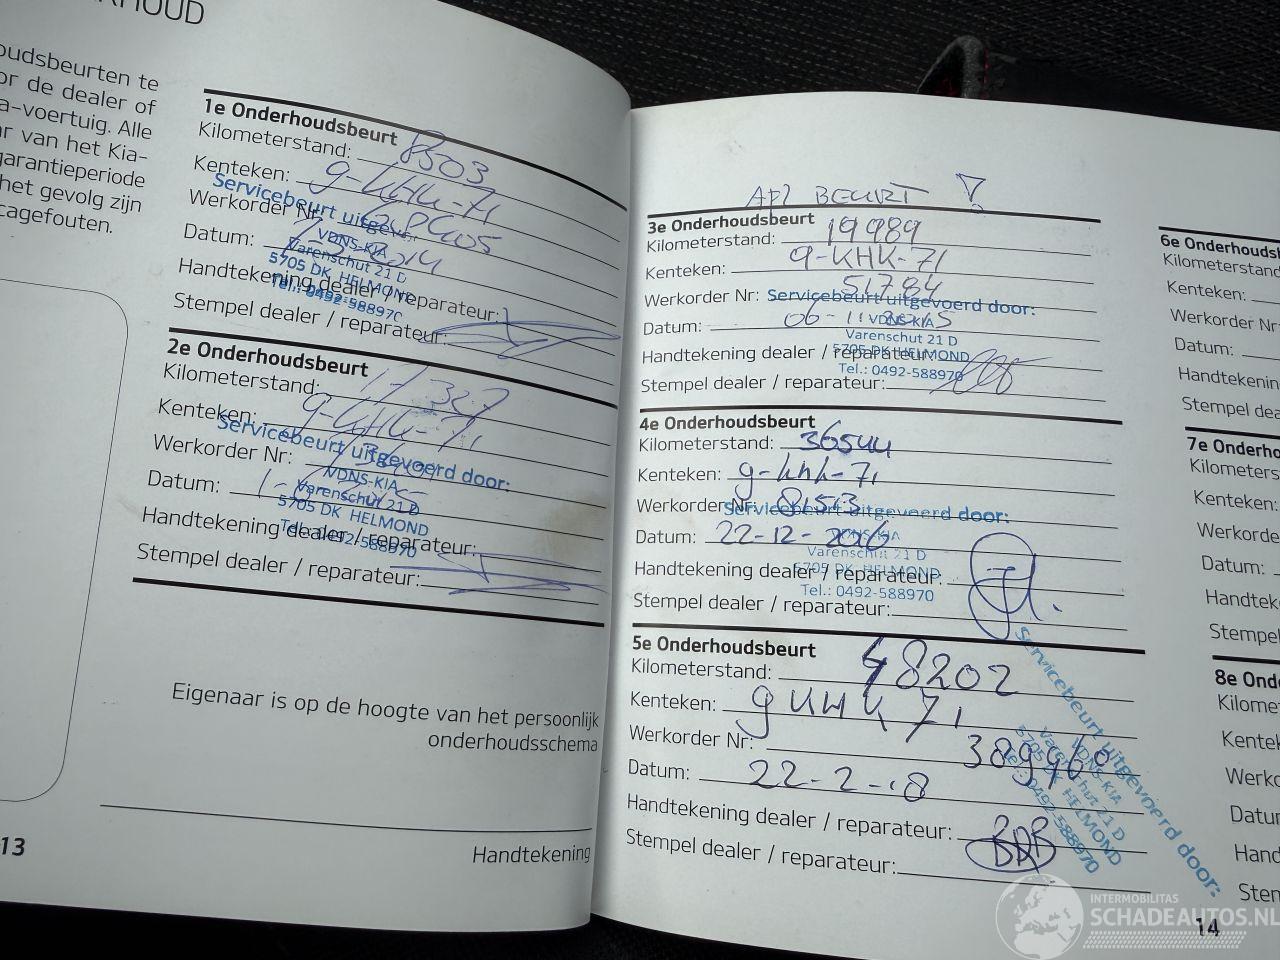 HOUD
oudsbeurten te
or de dealer of
a-voertuig. Alle
ar van het Kia-
garantieperiode
het gevolg zijn
cagefouten.
1e Onderhoudsbeurt
Kilometerstand: 8503
Kenteken: 9-KHK-71
Werkorder Nr:
Servicebeurt uitgevoe
VDNS-KIA
Datum:
Varenschut 21 D
5705 DK HELMOND
Handtekening dealer / reparateur:
Tel.: 0492-588970
Stempel dealer / reparateur:
2e Onderhoudsbeurt
Kilometerstand:
Kenteken: 9-KHK-71
Servicebeurt uitgevoerd door:
Werkorder Nr:
VDNS-KIA
Datum:
Varenschut 21 D
5705 DK HELMOND
Handtekening dealer / reparateur:
Tel.: 0492-588970
Stempel dealer / reparateur:
Eigenaar is op de hoogte van het persoonlijk
onderhoudsschema
Handtekening
13
BEURT !
3e Onderhoudsbeurt
Kilometerstand: 19989
Kenteken: 9-KHK-71
Werkorder Nr: 51784
Servicebeurt uitgevoerd door:
Datum: 06-11-2015
VDNS-KIA
Varenschut 21 D
Handtekening dealer / reparateur:
5705 DK HELMOND
Tel.: 0492-588970
Stempel dealer / reparateur:
4e Onderhoudsbeurt
Kilometerstand: 36544
Kenteken: 9-khk-71
Werkorder Nr: 81513
Servicebeurt uitgevoerd door:
Datum: 22-12-2016
VDNS-KIA
Varenschut 21 D
Handtekening dealer / reparateur:
5705 DK HELMOND
Tel.: 0492-588970
Stempel dealer / reparateur:
5e Onderhoudsbeurt
Kilometerstand: 48202
Kenteken: 9 KHK 71
Werkorder Nr: 389460
Datum: 22-2-18
Handtekening dealer / reparateur:
Stempel dealer / reparateur:
Servicebeurt uitgevoerd door:
VDNS-KIA
Varenschut 21 D
5705 DK HELMOND
Tel.: 0492-588970
6e Onderhouds
Kilometerstand
Kenteken:
Werkorder Nr
Datum:
Handtekenin
Stempel dea
7e Onderho
Kilometers
Kenteken:
Werkorde
Datum:
Handtek
Stempel
8e Ond
Kilome
Kentek
Werko
Datur
Hand
Sten
14
INTERMOBILITAS
SCHADEAUTOS.NL